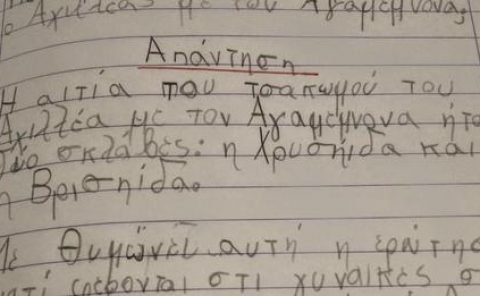 ο Αχιλλέας με τον Αγαμέμνονα;
Απάντηση
Η αιτία που τσακωμού του
Αχιλλέα με τον Αγαμέμνονα ήτα
δύο σκλάβες: η Χρυσηίδα και
η Βρισηίδα.
Με θυμώνει αυτή η ερώτησ
στι γυναίκες σ